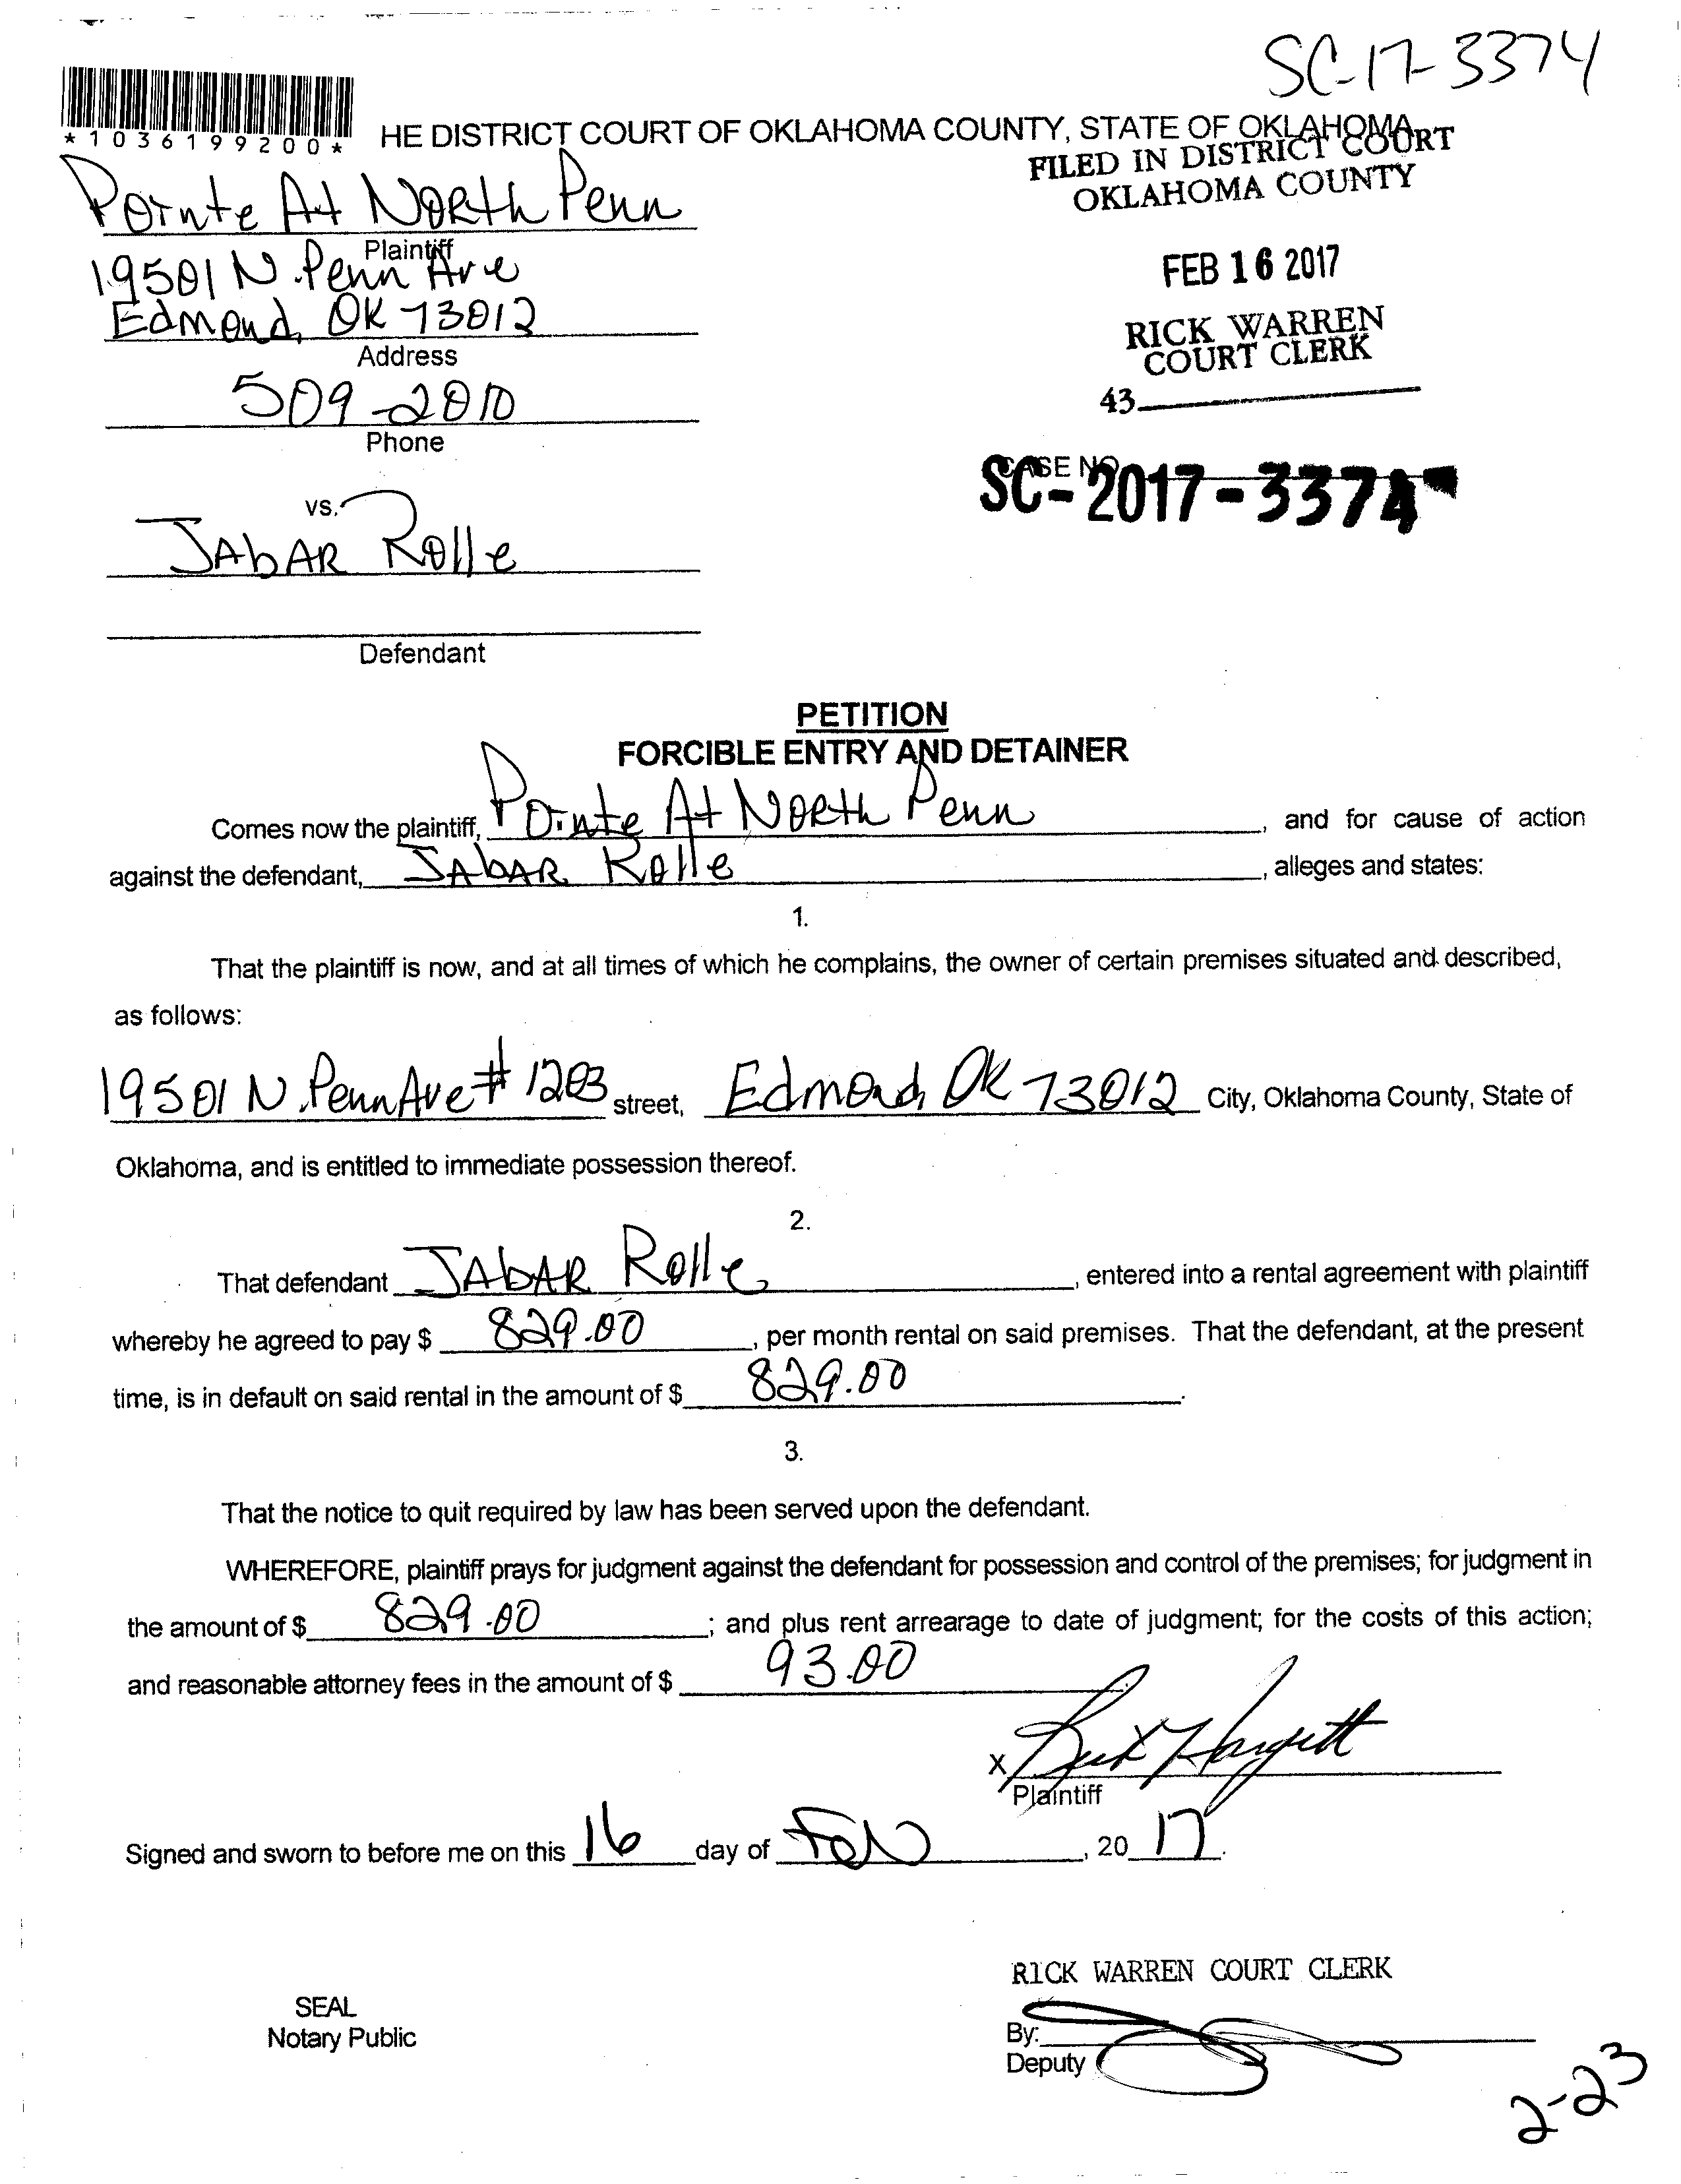 SC-17-3374
*1036199200*
HE DISTRICT COURT OF OKLAHOMA COUNTY, STATE OF OKLAHOMA
FILED IN DISTRICT COURT
OKLAHOMA COUNTY
Pointe At North Penn
Plaintiff
19501 N. Penn Ave
Edmond, OK 73012
Address
FEB 16 2017
RICK WARREN
COURT CLERK
43
509-2010
Phone
CASE NO.
SC-2017-3374
vs.
JAbAR Rolle
Defendant
PETITION
FORCIBLE ENTRY AND DETAINER
Comes now the plaintiff, Pointe At North Penn, and for cause of action
against the defendant, JAbAR Rolle, alleges and states:
1.
That the plaintiff is now, and at all times of which he complains, the owner of certain premises situated and described,
as follows:
19501 N. Penn Ave # 1203 street, Edmond, OK 73012 City, Oklahoma County, State of
Oklahoma, and is entitled to immediate possession thereof.
2.
That defendant JAbAR Rolle, entered into a rental agreement with plaintiff
whereby he agreed to pay $ 829.00, per month rental on said premises. That the defendant, at the present
time, is in default on said rental in the amount of $ 829.00.
3.
That the notice to quit required by law has been served upon the defendant.
WHEREFORE, plaintiff prays for judgment against the defendant for possession and control of the premises; for judgment in
the amount of $ 829.00; and plus rent arrearage to date of judgment; for the costs of this action;
and reasonable attorney fees in the amount of $ 93.00.
X
Plaintiff
Signed and sworn to before me on this 16 day of Feb, 20 17.
RICK WARREN COURT CLERK
SEAL
Notary Public
By:
Deputy
2-23